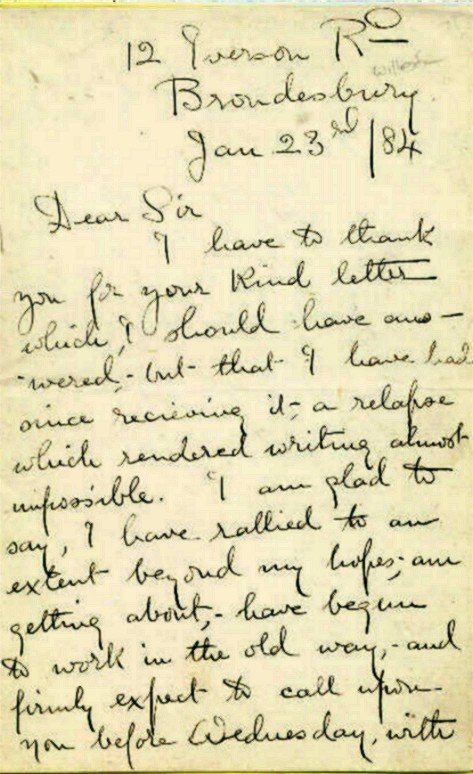 12 Iverson Rd
Brondesbury
Jan 23rd /84
Dear Sir
I have to thank
you for your kind letter
which, I should have ans-
-wered,- but that I have had
since recieving it,- a relapse
which rendered writing almost
impossible. I am glad to
say, I have rallied to an
extent beyond my hopes,- am
getting about,- have begun
to work in the old way,- and
firmly expect to call upon-
you before Wednesday, with